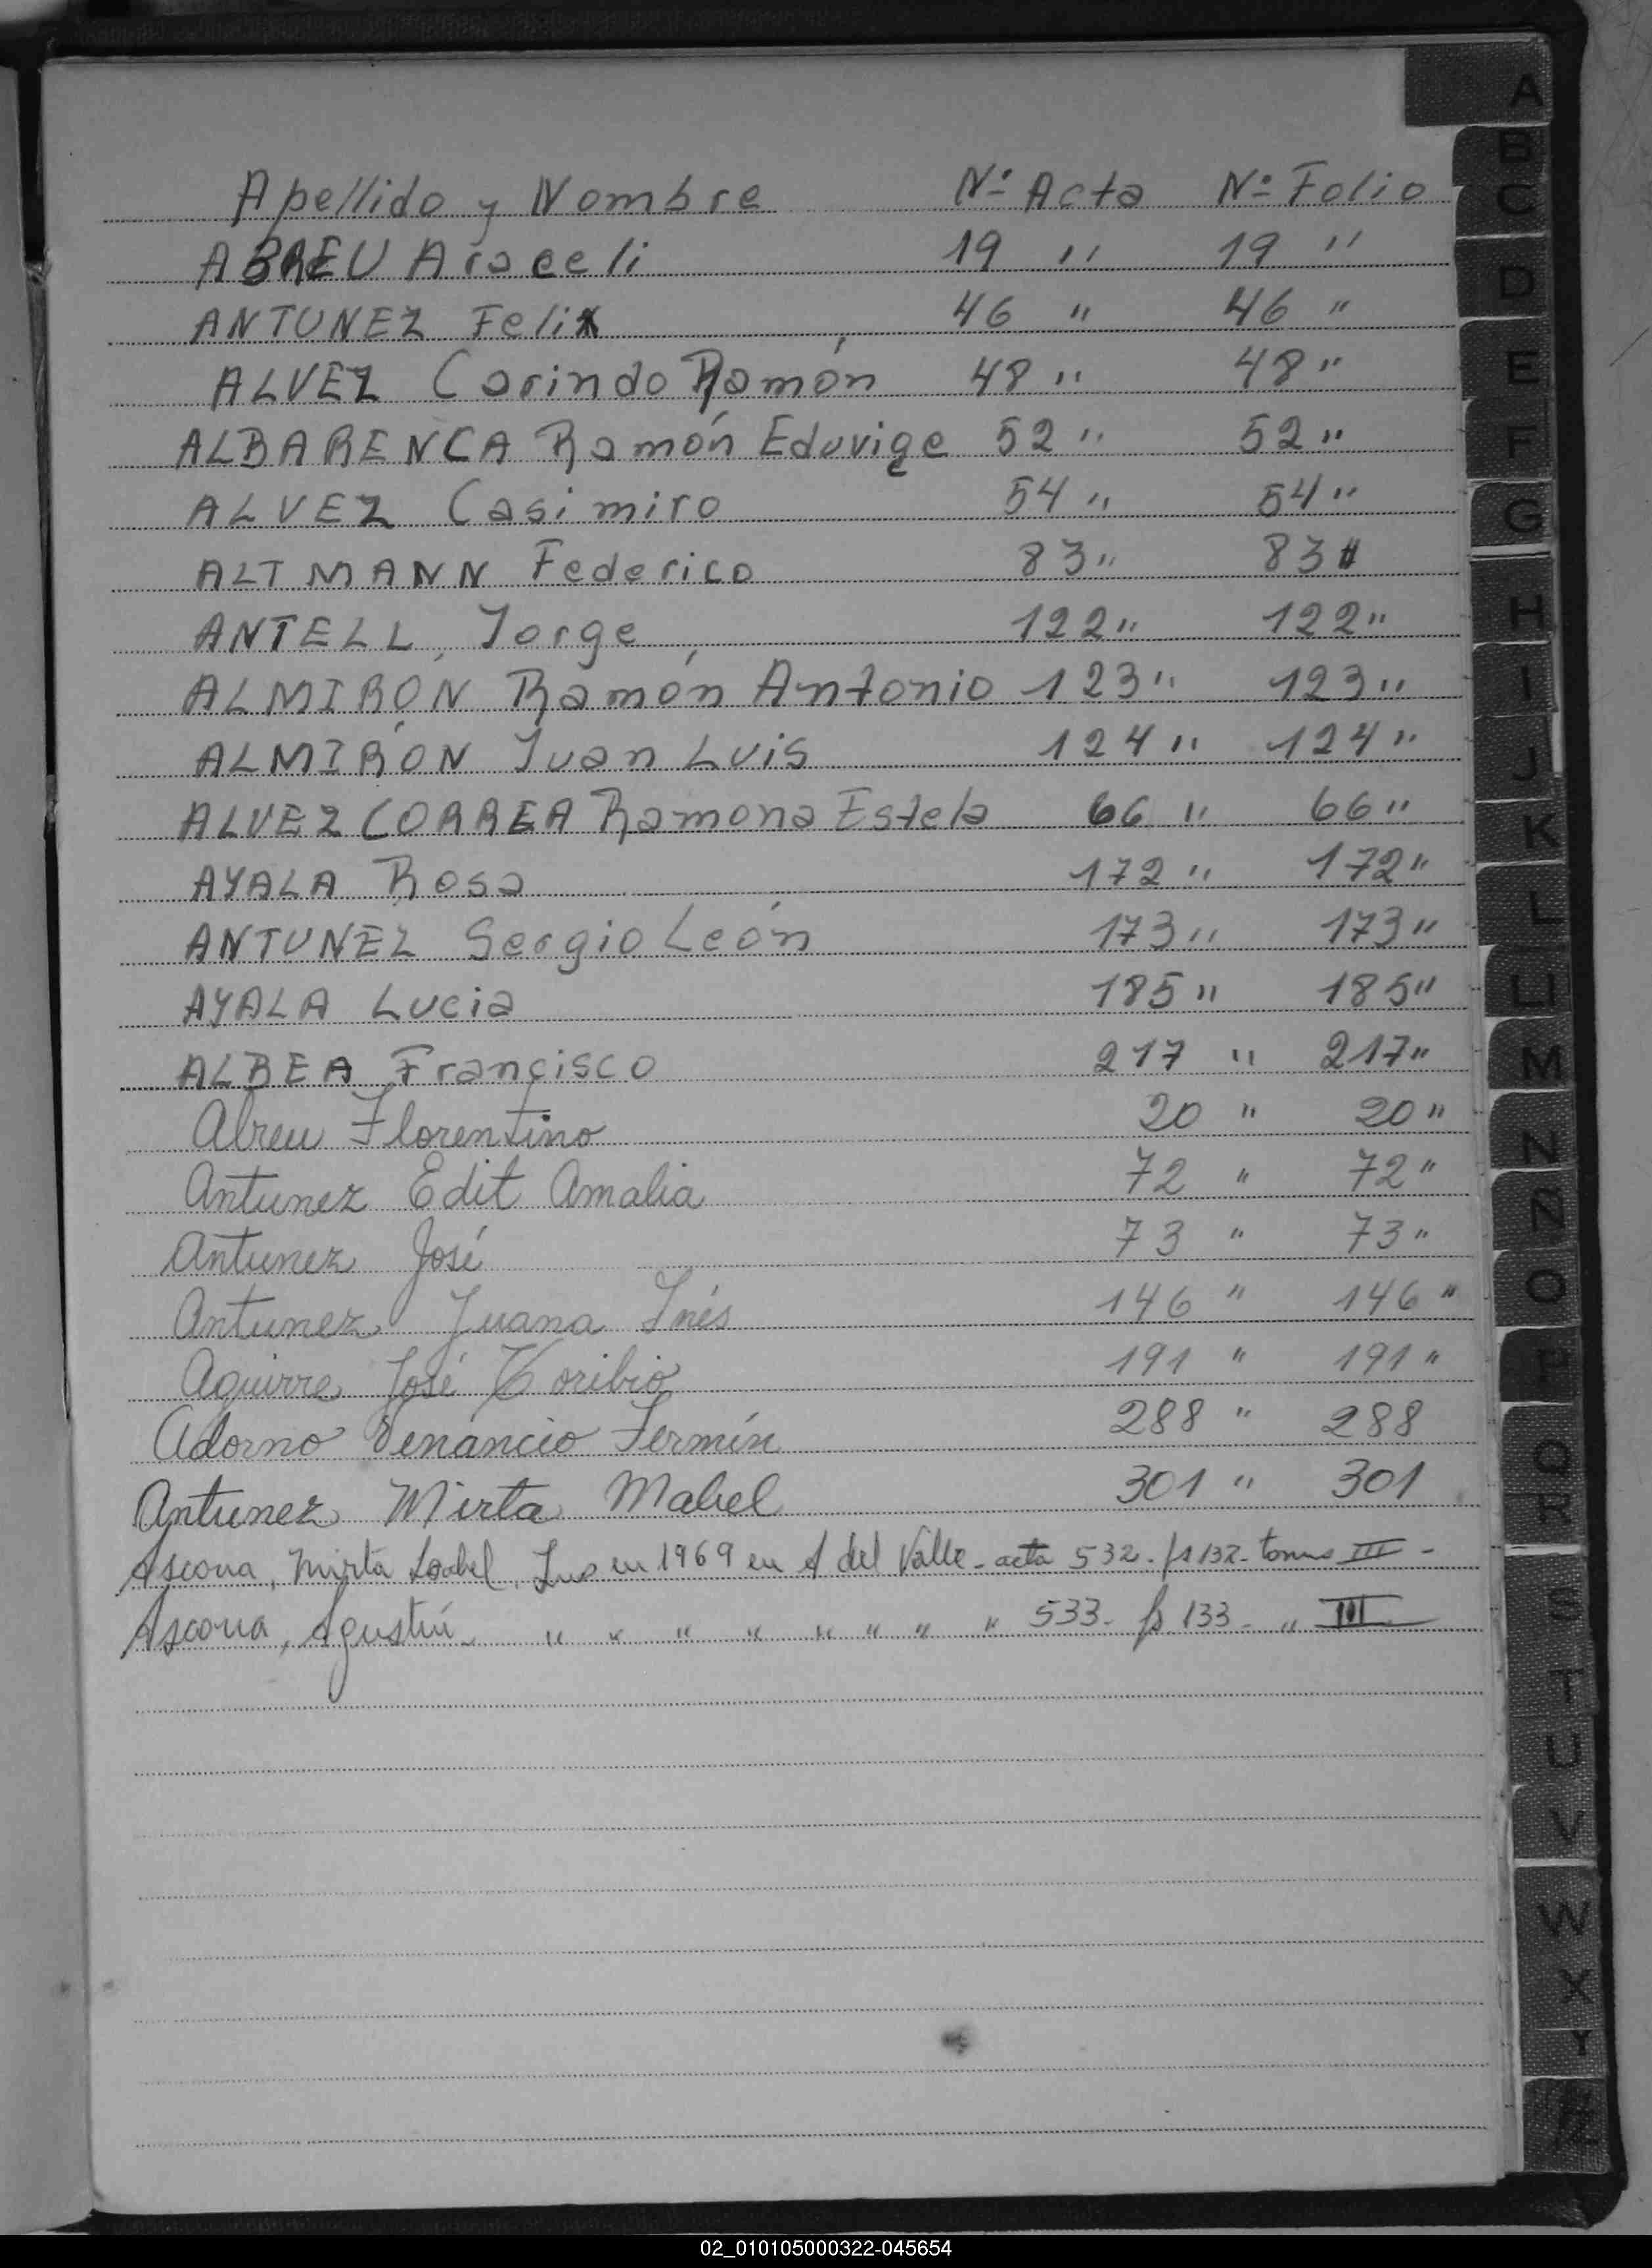 Apellido y Nombre Nº Acta Nº Folio
ABREU Araceli 19 " 19 "
ANTUNEZ Felix 46 " 46 "
ALVEZ Carindo Ramón 48 " 48 "
ALBARENCA Ramón Eduvige 52 " 52 "
ALVEZ Casimiro 54 " 54 "
ALTMANN Federico 83 " 83 "
ANTELL, Jorge 122 " 122 "
ALMIRON Ramón Antonio 123 " 123 "
ALMIRÓN Juan Luis 124 " 124 "
ALVEZ CORREA Ramona Estela 66 " 66 "
AYALA Rosa 172 " 172 "
ANTUNEZ Sergio León 173 " 173 "
AYALA Lucia 185 " 185 "
ALBEA Francisco 217 " 217 "
Abreu Florentino 20 " 20 "
Antunez Edit Amalia 72 " 72 "
Antunez José 73 " 73 "
Antunez Juana Inés 146 " 146 "
Aguirre José Toribio 191 " 191 "
Adorno Venancio Fermín 288 " 288
Antunez Mirta Mabel 301 " 301
Ascona, Mirta Isabel, en 1969 en A del Valle - acta 532 - fs 132 - tomo III -
Ascona, Agustín - " " " " " " " " 533 - fs 133 - " III
A
B
C
D
E
F
G
H
I
J
K
L
LL
M
N
Ñ
O
P
Q
R
S
T
U
V
W
X
Y
Z
02_010105000322-045654